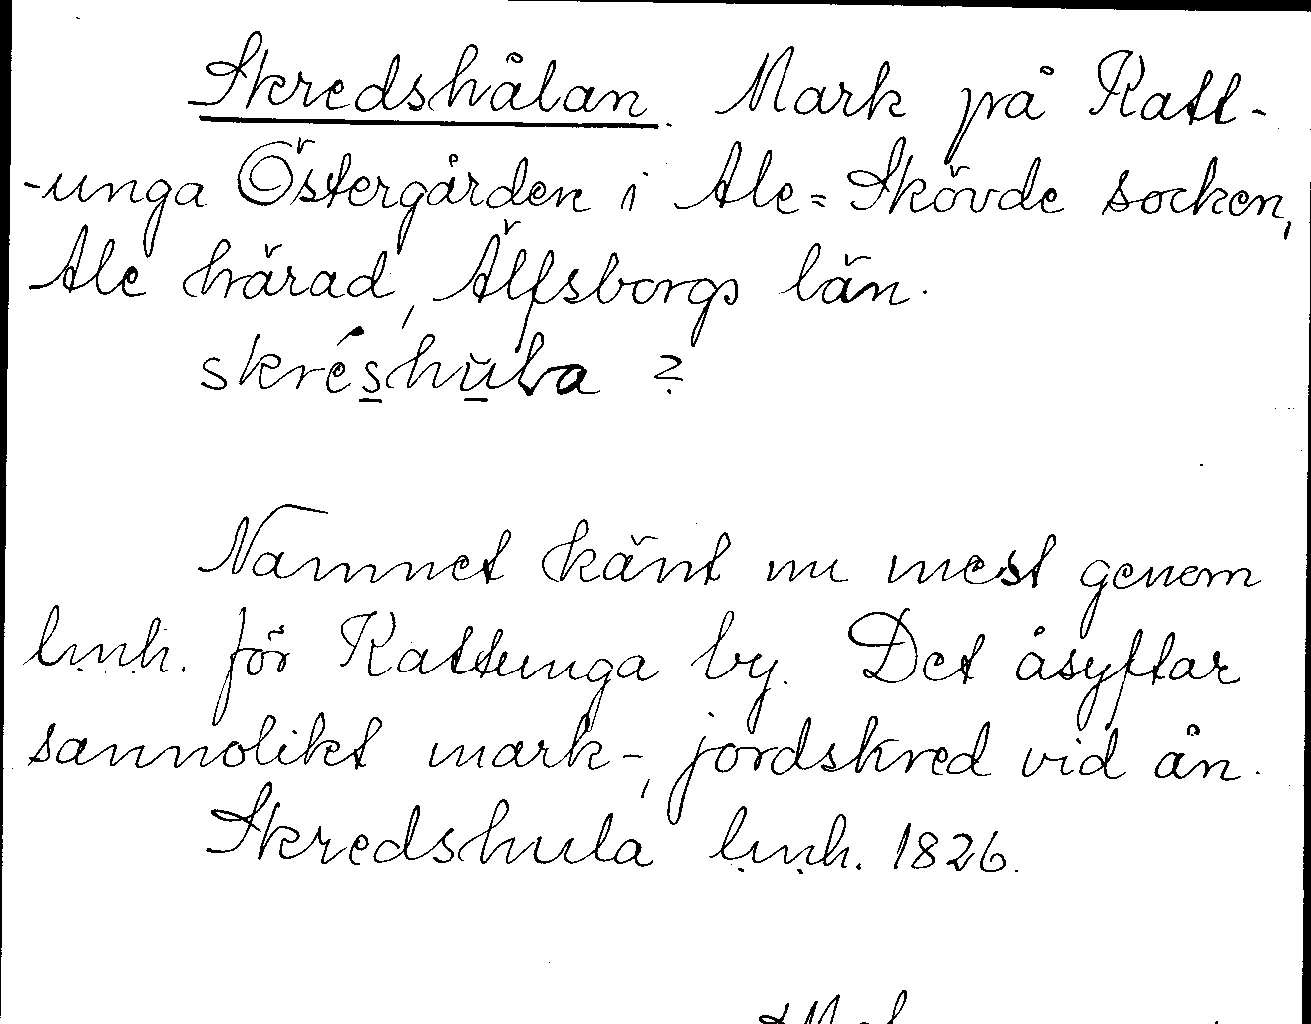 Skredshålan. Mark på Ratt-
-unga Östergården i Ale=Skövde socken,
Ale härad, Älfsborgs län.
skréshŭla ?
Namnet känt nu mest genom
l.m.h. för Rattunga by. Det åsyftar
sannolikt mark-, jordskred vid ån.
Skredshula l.m.h. 1826.